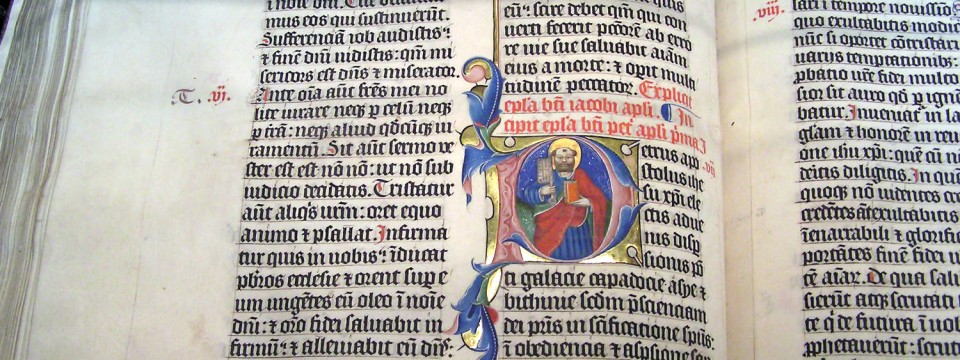 mus eos qui sustinuerūt.
Sufferenciam iob audistis:
⁊ finē dn̄i uidistis: qm̄ mi
sericors est dn̄s ⁊ miserator.
Ante oīa aūt frēs mei no
lite iurare neqꝫ p celū neqꝫ
p t̄rā: neqꝫ aliud qd̄cūqꝫ iu
ramentū. Sit aūt sermo ve
ster est est nō nō: ut nō sub
iudicio decidatis. Tristatur
aūt aliq̄s urm̄: oret equo
animo ⁊ psallat. Infirma
tur quis in uobis: īducat
pbr̄os ecclesie ⁊ orent sup e
um ungētes eū oleo ī noīe
dn̄i: ⁊ orō fidei saluabit in
firmū: ⁊ alleuiabit eū dn̄s:
.vi.
eū: scire debet qm̄ qui con
uerti fecerit pctōrē ab erro
re uie sue saluabit aīam
eius a morte: ⁊ opit multi
tudinē peccator. Explicit
epl̄a bt̄i iacobi apl̄i. In
cipit epl̄a bt̄i pet apl̄i p̄ma
P
etrus apo
stolus ihe
su xp̄i ele
ctis adue
nis disp
sionis pō
ti galacie capadocie asye ⁊
bithinie scd̄m p̄scienciam
dei pr̄is in sc̄ificatione sp̄us:
ī obediencia ⁊ aspsione san
.viii.
.vii.
lari ī tempore nouissio
quo exultabitis modic
nūc si oportet cōtristar
uarijs temptationibꝫ:
p̄batio ur̄e fidei multo
sior sit auro qd̄ p ignē
batur. Inueniat̄ in la
glam ⁊ honorē in reu
one ihū xp̄i: quē cū nō
deitis diligitis. In quē
quoqꝫ nō uidentes c
credētes aūt exultabitis
inenarrabili ⁊ glorific
portātes finē fidei ues
tē aīar. De qua salu
sierūt atqꝫ scrutati
te q̄ de futura ī uob
pphetauerūt: scrut